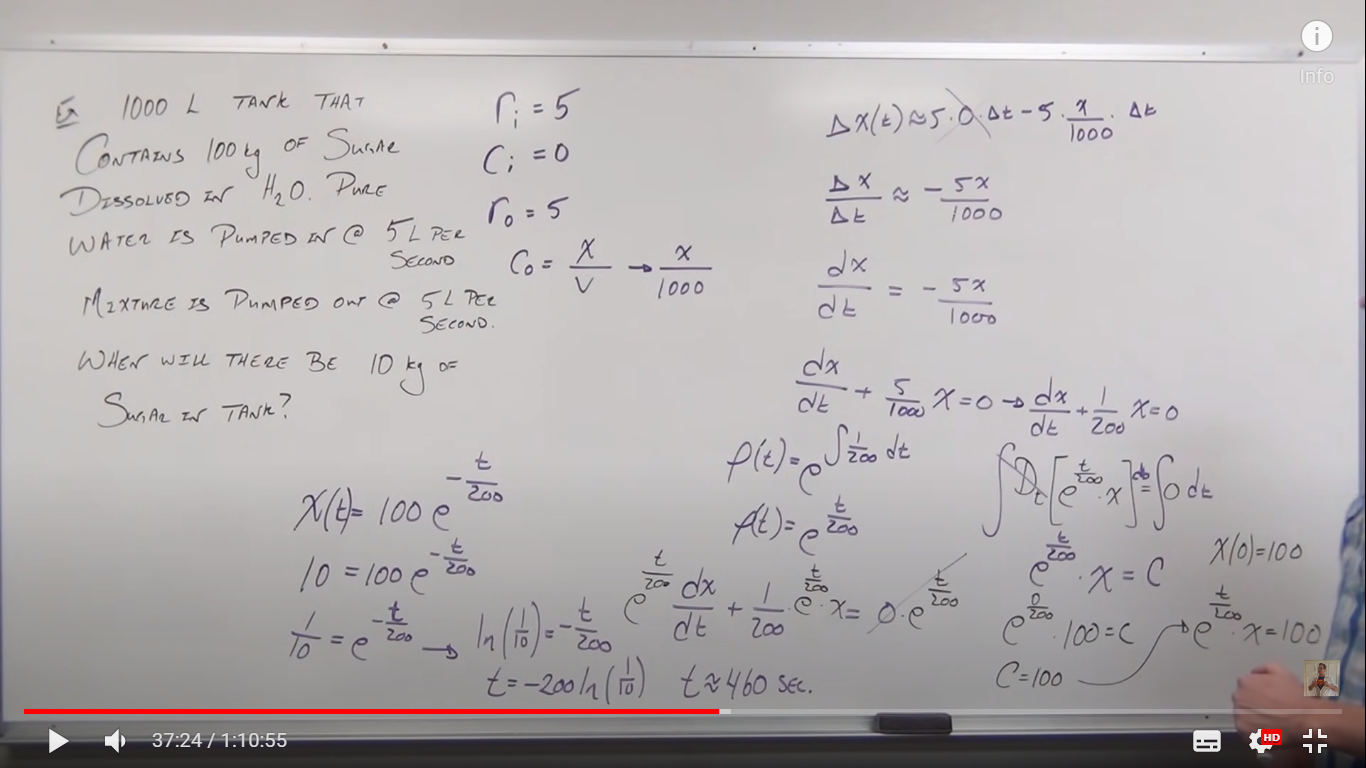 Info
Ex 1000 L TANK THAT
CONTAINS 100 kg OF SUGAR
DISSOLVED IN H₂O. PURE
WATER IS PUMPED IN @ 5 L PER
SECOND
MIXTURE IS PUMPED OUT @ 5 L PER
SECOND.
WHEN WILL THERE BE 10 kg OF
SUGAR IN TANK?
r_i = 5
C_i = 0
r_o = 5
C_o = X/V → x/1000
ΔX(t) ≈ 5·0·Δt − 5·x/1000·Δt
Δx/Δt ≈ −5x/1000
dx/dt = −5x/1000
dx/dt + 5/1000 x = 0 → dx/dt + 1/200 x = 0
ρ(t) = e^(∫ 1/200 dt)
ρ(t) = e^(t/200)
e^(t/200) dx/dt + 1/200 · e^(t/200) · x = 0·e^(t/200)
∫ D_t [e^(t/200) · x] dt = ∫ 0 dt
e^(t/200) · x = C
X(0) = 100
e^(0/200) · 100 = C
C = 100
e^(t/200) · x = 100
X(t) = 100 e^(−t/200)
10 = 100 e^(−t/200)
1/10 = e^(−t/200) → ln(1/10) = −t/200
t = −200 ln(1/10) t ≈ 460 SEC.
37:24 / 1:10:55
HD